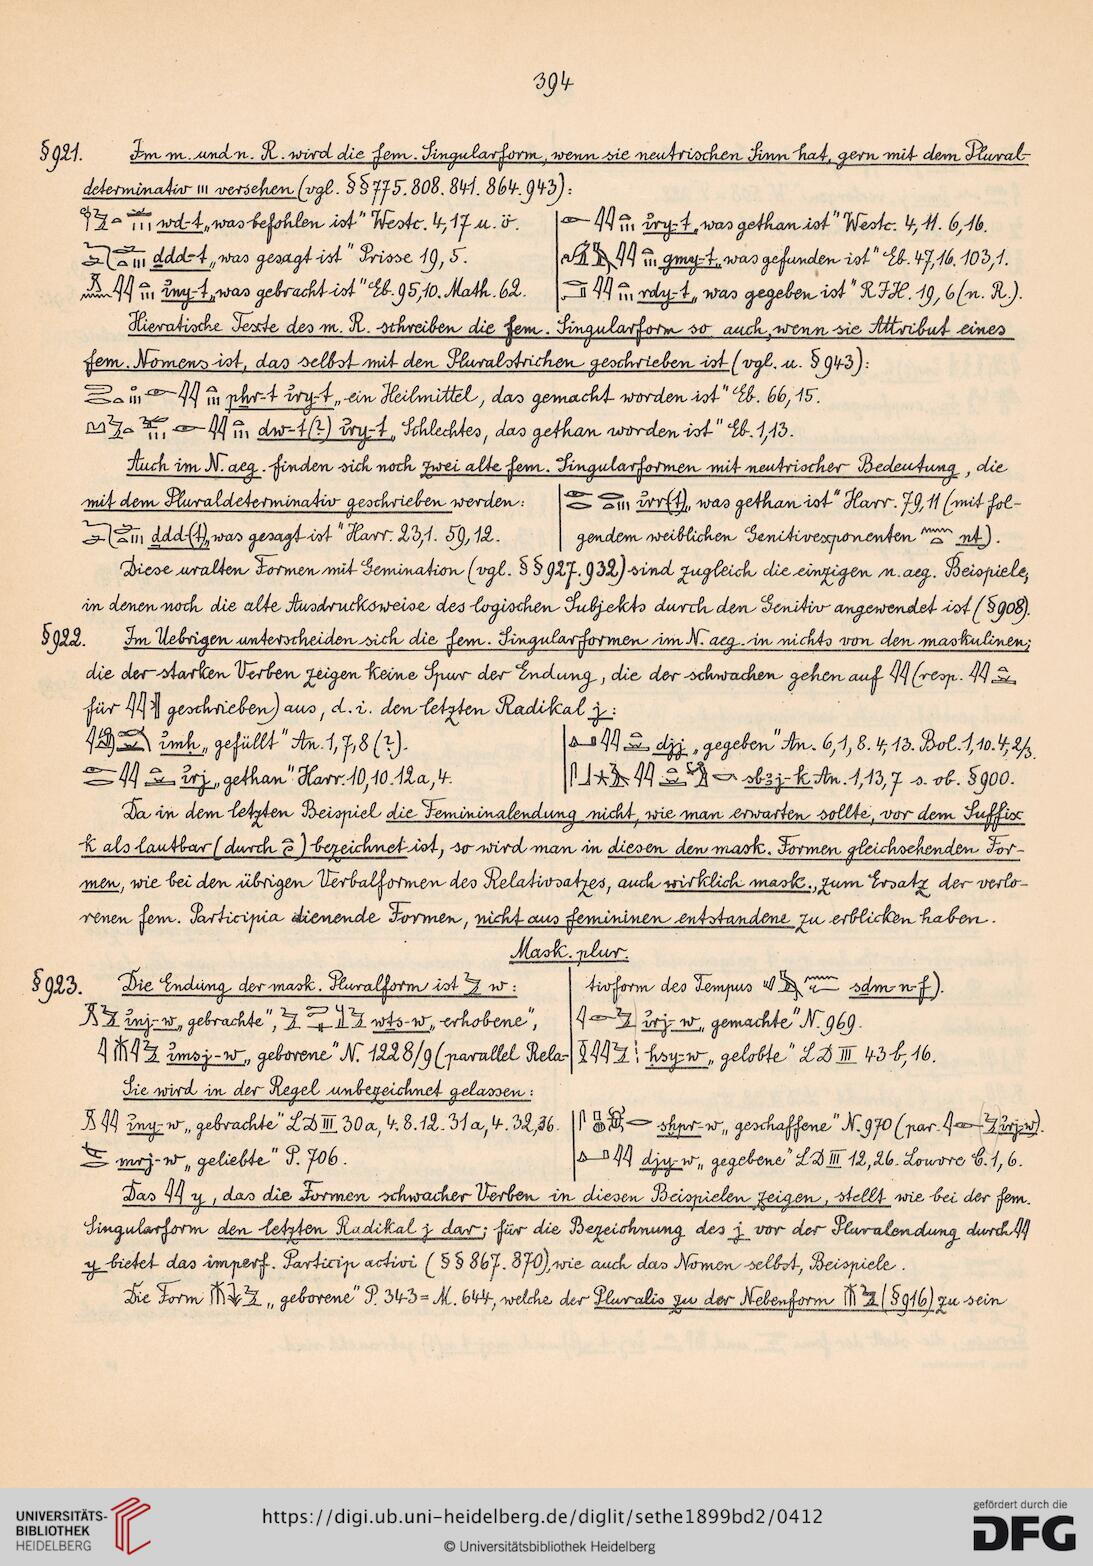 394
§921. Im m. und n. R. wird die fem. Singularform, wenn sie neutrischen Sinn hat, gern mit dem Plural-
determinativ ııı versehen (vgl. §§775. 808. 841. 864. 943):
wd-t „was befohlen ist" Westc. 4,17 u. ö.
ddd-t „was gesagt ist" Prisse 19, 5.
ỉny-t „was gebracht ist" Eb. 95,10. Math. 62.
ỉry-t „was gethan ist" Westc. 4, 11. 6, 16.
gmy-t „was gefunden ist" Eb. 47,16. 103,1.
rdy-t „was gegeben ist" R.I.H. 19, 6 (n. R.).
Hieratische Texte des m. R. schreiben die fem. Singularform so auch, wenn sie Attribut eines
fem. Nomens ist, das selbst mit den Pluralstrichen geschrieben ist (vgl. u. §943):
phr-t ỉry-t „ein Heilmittel, das gemacht worden ist" Eb. 66, 15.
dw-t(?) ỉry-t „Schlechtes, das gethan worden ist" Eb. 1,13.
Auch im N. aeg. finden sich noch zwei alte fem. Singularformen mit neutrischer Bedeutung, die
mit dem Pluraldeterminativ geschrieben werden:
ddd-(t) „was gesagt ist" Harr. 23,1. 59, 12.
ỉrr(t) „was gethan ist" Harr. 79, 11 (mit fol-
gendem weiblichen Genitivexponenten nt).
Diese uralten Formen mit Gemination (vgl. §§927. 932) sind zugleich die einzigen n. aeg. Beispiele,
in denen noch die alte Ausdrucksweise des logischen Subjekts durch den Genitiv angewendet ist (§908).
§922. Im Uebrigen unterscheiden sich die fem. Singularformen im N. aeg. in nichts von den maskulinen;
die der starken Verben zeigen keine Spur der Endung, die der schwachen gehen auf (resp.
für geschrieben) aus, d. i. den letzten Radikal j:
ỉmḥ „gefüllt" An. 1, 7, 8 (?).
ỉrj „gethan" Harr. 10, 10. 12a, 4.
djj „gegeben" An. 6, 1, 8. 4, 13. Bol. 1, 10. 4, 2/3.
sbꜣj-k An. 1, 13, 7 s. ob. §900.
Da in dem letzten Beispiel die Femininalendung nicht, wie man erwarten sollte, vor dem Suffix
k als lautbar (durch ) bezeichnet ist, so wird man in diesen den mask. Formen gleichsehenden For-
men, wie bei den übrigen Verbalformen des Relativsatzes, auch wirklich mask., zum Ersatz der verlo-
renen fem. Participia dienende Formen, nicht aus femininen entstandene zu erblicken haben.
Mask. plur.
§923. Die Endung der mask. Pluralform ist w:
ỉnj-w „gebrachte", wts-w „erhobene",
ỉmsj-w „geborene" N. 1228/9 (parallel Rela-
tivform des Tempus sdm-n-f).
ỉrj-w „gemachte" N. 969.
ḥsy-w „gelobte" LD III 43b, 16.
Sie wird in der Regel unbezeichnet gelassen:
ỉny-w „gebrachte" LD III 30a, 4. 8. 12. 31a, 4. 32, 36.
mrj-w „geliebte" P. 706.
sḫpr-w „geschaffene" N. 970 (par. ỉrj-w).
djy-w „gegebene" LD III 12, 26. Louvre C. 1, 6.
Das y, das die Formen schwacher Verben in diesen Beispielen zeigen, stellt wie bei der fem.
Singularform den letzten Radikal j dar; für die Bezeichnung des j vor der Pluralendung durch
y bietet das imperf. Particip activi (§§867. 870), wie auch das Nomen selbst, Beispiele.
Die Form „geborene" P. 343 = M. 644, welche der Pluralis zu der Nebenform (§916) zu sein
UNIVERSITÄTS-
BIBLIOTHEK
HEIDELBERG
https://digi.ub.uni-heidelberg.de/diglit/sethe1899bd2/0412
© Universitätsbibliothek Heidelberg
gefördert durch die
DFG